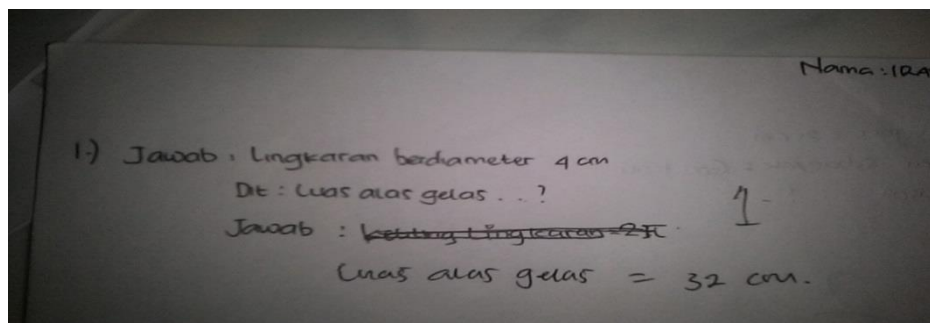 Nama : IRA
1.) Jawab : Lingkaran berdiameter 4 cm
Dit : Luas alas gelas . . ?
Jawab : keliling lingkaran = 2π
1
Luas alas gelas = 32 cm.